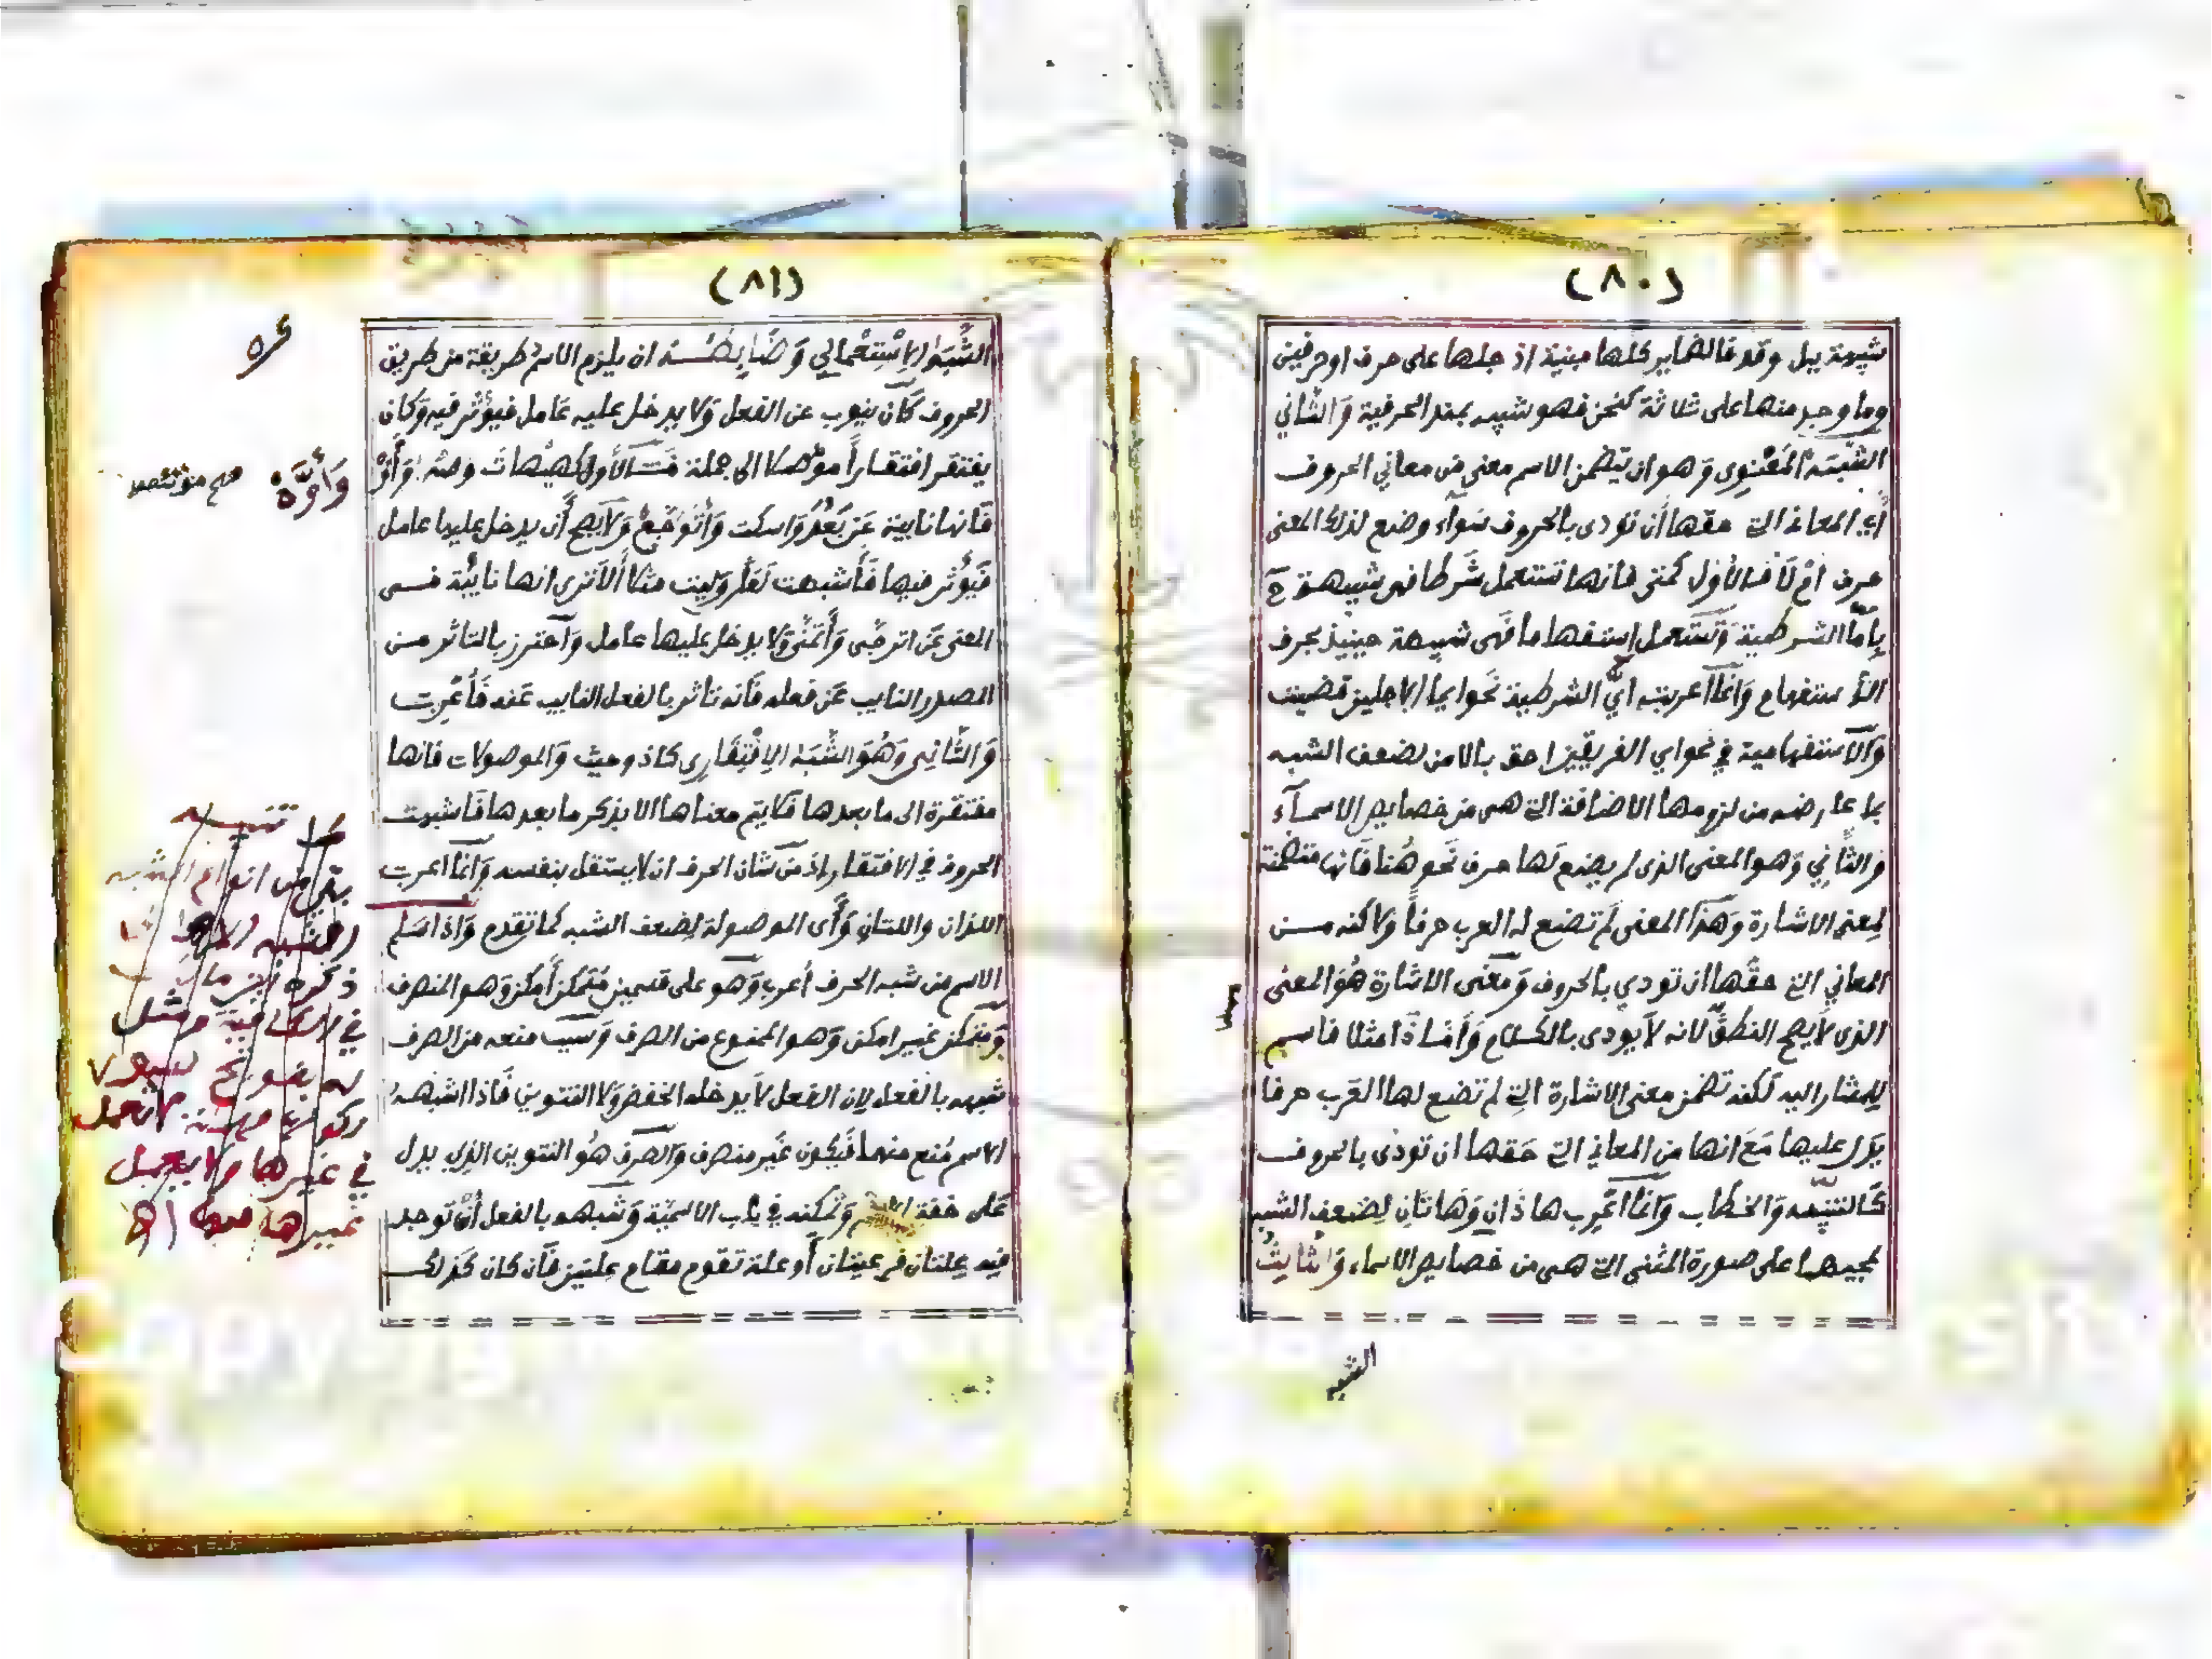 (٨٠)
شبيهة ببل وقد فالضماير كلها مبنية اذ جلها على حرف او حرفين
وما وجد منها على ثلاثة كنحن فهو شبيه بمنذ الحرفية وَالثّاني
الشَّبَهُ المَعْنَوِى وَهو ان يتضمن الاسم معنى من معاني الحروف
أي المعاني التي حقها أن تؤدى بالحروف سَوآء وضع لذلك المعنى
حرف امْ لَا فالأول كمتى فانها تستعمل شَرطا فهى شبيهة ح
بإمّا الشرطية وَتستَعمل إستفهاما فَهى شبيهة حينيذ بحرف
الأستفهام وَانما أعربت أيّ الشرطية نَحو ايما الاجلين قضيت
وَالاَستفهامية في نحو اي الفريقين احق بالامن لضعف الشبه
بما عارضه من لزومها الاضافة التي هى من خصايص الاسمآء
وَالثّاني وَهو المعنى الذى لم يضع لَها حرف نَحو هُنا فَانها متضمنة
لمِعنى الاشارة وَهَذا المعنى لَم تضع له العرب حرفاً ولاكنه مـن
المعاني التي حقّها ان تودي بالحروف وَمعْنى الاشارة هُوَ المعنى
الذى لاَ يصح النطق لانه لاَ يودى بالكلام وَأمّا ذَا مثلا فاسم
لِلمشار اليه لَكنه تضمن معنى الاشارة التي لم تضع لها العَرب حرفا
يَدل عليها مَعَ انها من المعاني التي حَقها ان تودى بالحروف
كَالتنبيه وَالخطاب وَانما اعْرِب هاذَانِ وَهَاتَانِ لِضعف الشبه
بمجيهما على صورة المثنى التي هى من خصايص الاسماء وَالثّالِثُ
الشبه
(٨١)
الشَّبَهُ الاِسْتِعْمالِي وَضَابِطُـهُ ان يلزم الاسم طريقة من طريق
الحروف كَأن ينوب عن الفعل وَلا يدخل عليه عَامل فيؤثر فيه وَكان
يفتقر افتقاراً مؤصلا الى جملة فَـالأول كهَيْهاتَ وصَه وَأوَّ
وَأوَّهْ صح
فَانها نايبة عَن بَعُدَ وَاسكت وَأتَوَجَّعُ وَلاَ يصح أن يدخل عليها عامل
فيَؤثر فيها فَأشبهت لَعَل وَلَيت مثلا ألاَ ترى انها نايبَة فـى
المعنى عَن اترجّى وَأتمَنّى وَلا يدخل عليها عامل وَاحترز بالتاثر مـن
المصدر النايب عَن فعله فَانه تاثر بالفعل النايب عَنه فَأعْرِبت
وَالثَّانِى وَهُوَ الشَّبَهُ الاِفْتِقَارِى كاذ وحيث وَالموصولات فَانها
مفتقرة الى ما بعدها فَلا يتم معناها الا بذكر ما بعدها فَاشبهت
الحروف في الافتقار إذ مَن شَان الحرف ان لا يستقل بنفسه وَانما اعربت
اللذان واللتان وَأى الموصولة لِضعف الشبه كما تقدم وَاذا سَلم
الاسم من شبه الحرف أعرب وَهو على قسمين مُتمكن أمكن وَهو المنصرف
وَمتمكن غير امكن وَهو الممنوع من الصرف وَسبب منعه من الصرف
شبهه بالفعل لِان الفعل لاَ يدخله الخفض وَلا التنوين فَاذا اشبهـه
الاسم مُنع منهما فَيكون غَير منصرف وَالصرف هُو التنوين الذي يدل
عَلى خفة الاسم وَتمكنه في باب الاسميّة وَشبهه بالفعل أن توجد
فيه عِلتان فرعيتان أو علة تقوم مقام علتين فَان كان كَذلك
تنبيه
بقي من انواع الشبه
الشبه
ذكره ابن مالك
في الكافية